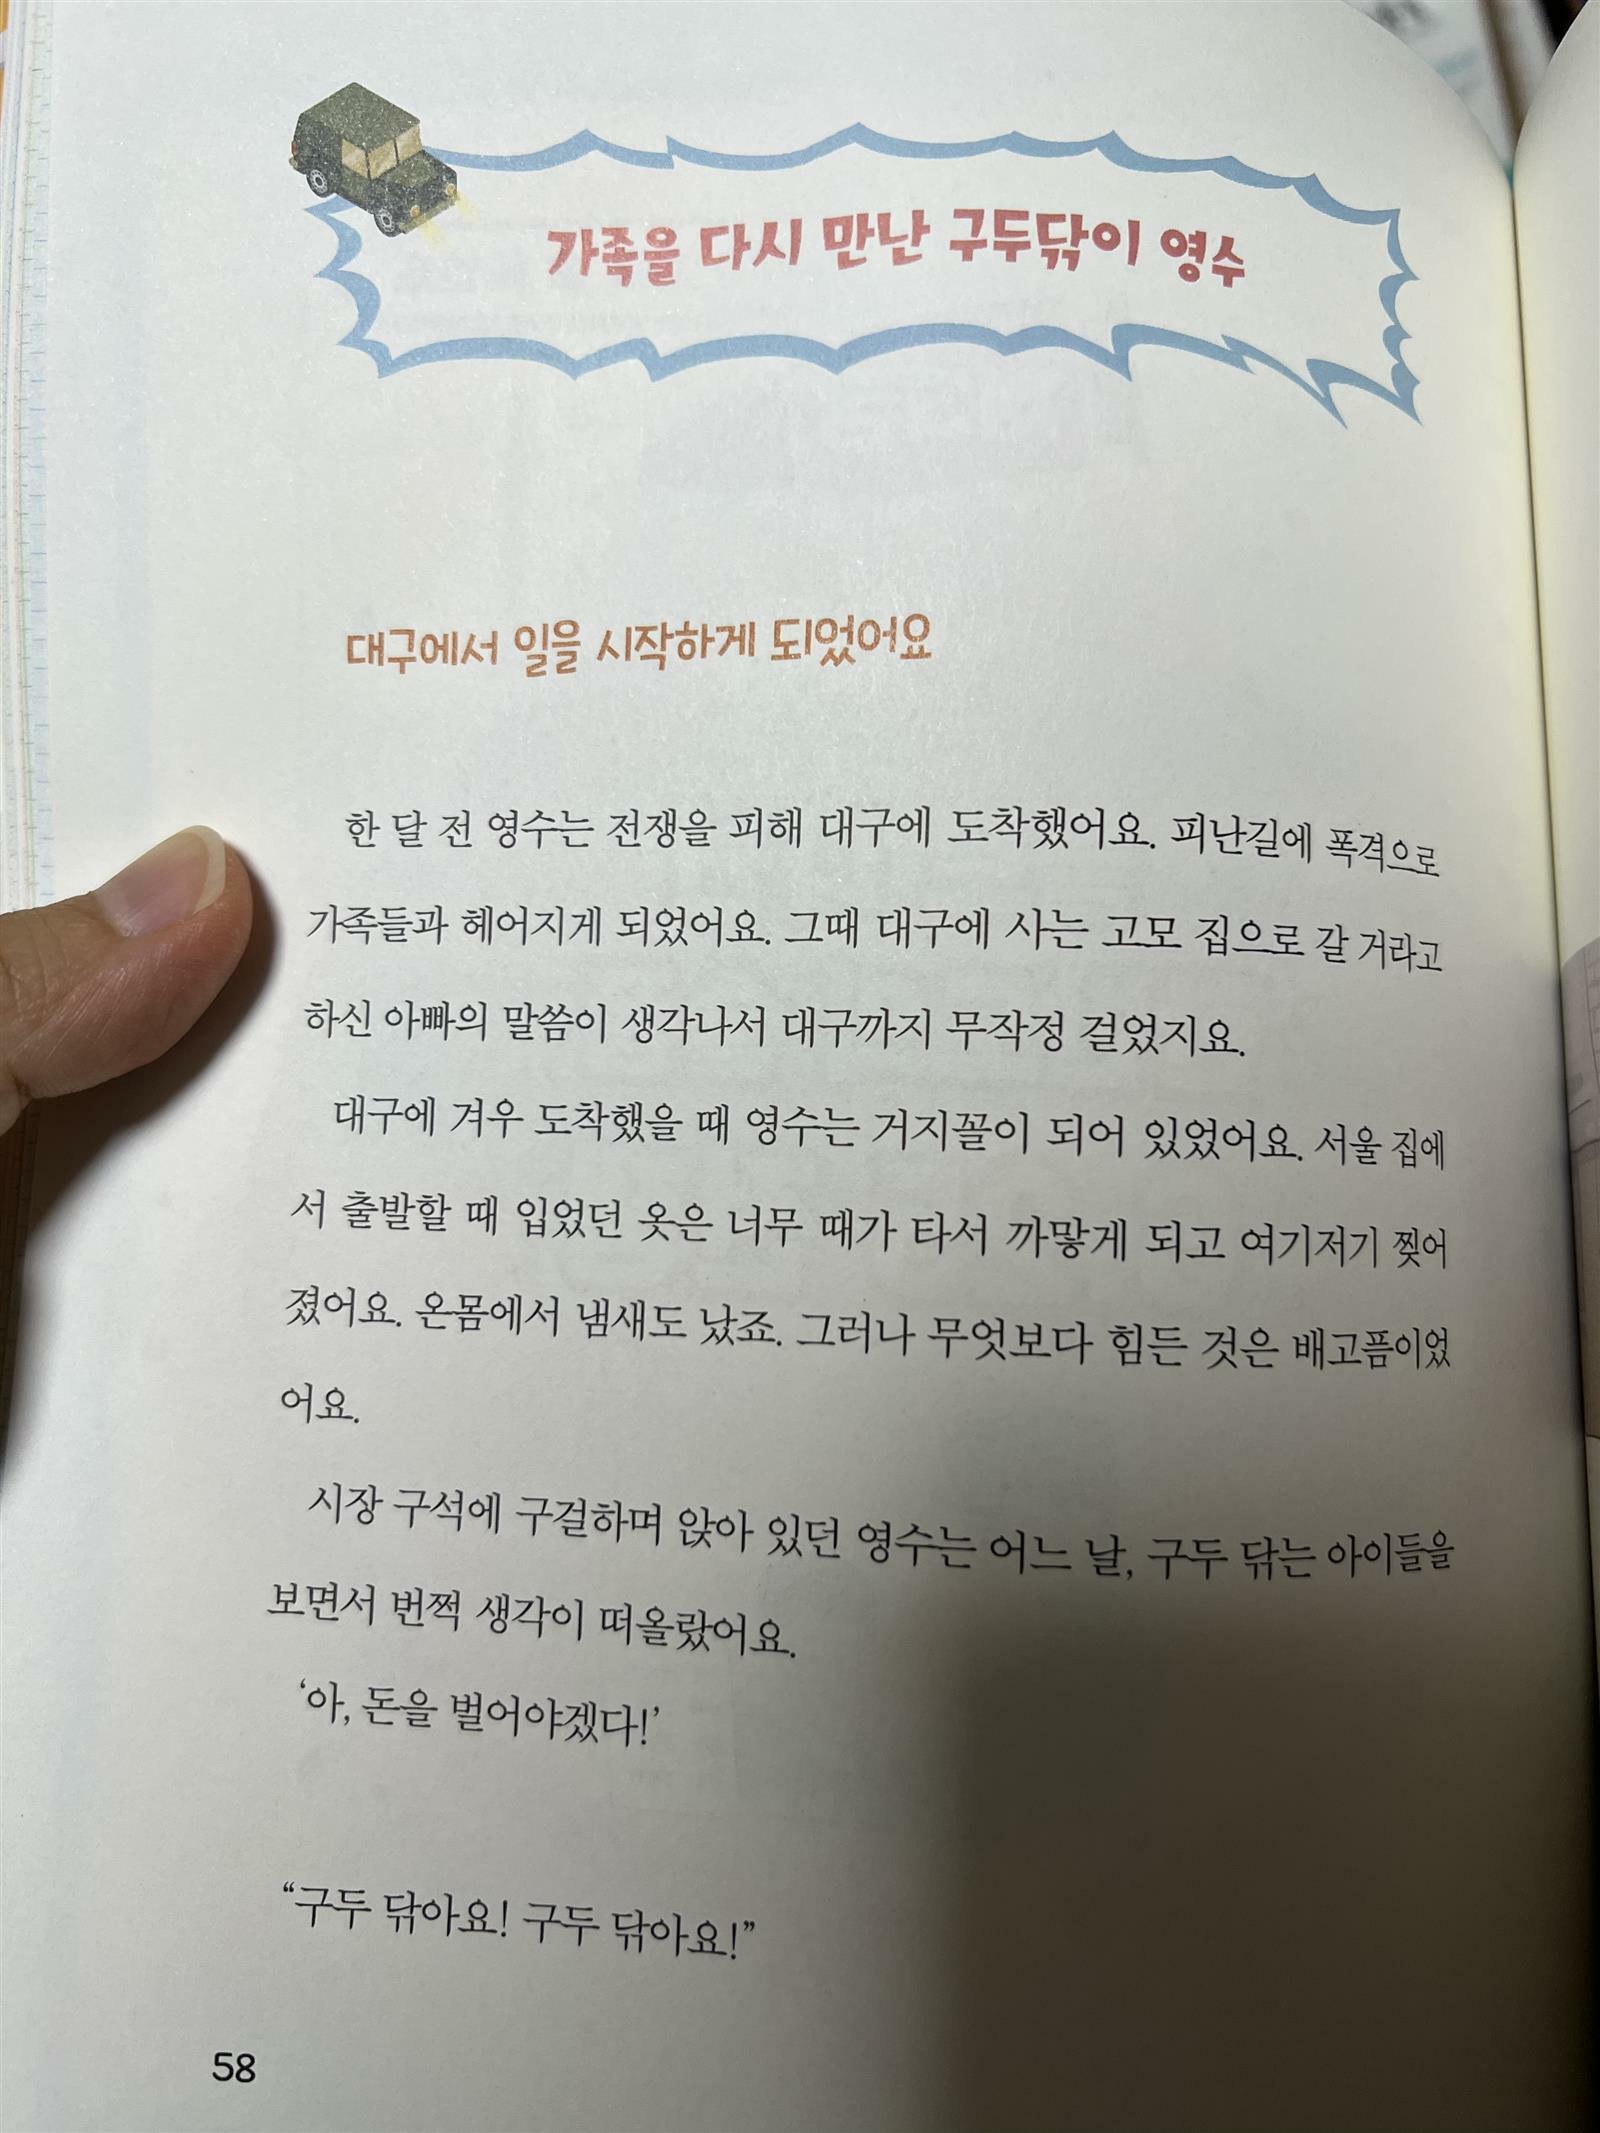 가족을 다시 만난 구두닦이 영수
대구에서 일을 시작하게 되었어요
한 달 전 영수는 전쟁을 피해 대구에 도착했어요. 피난길에 폭격으로
가족들과 헤어지게 되었어요. 그때 대구에 사는 고모 집으로 갈 거라고
하신 아빠의 말씀이 생각나서 대구까지 무작정 걸었지요.
대구에 겨우 도착했을 때 영수는 거지꼴이 되어 있었어요. 서울 집에
서 출발할 때 입었던 옷은 너무 때가 타서 까맣게 되고 여기저기 찢어
졌어요. 온몸에서 냄새도 났죠. 그러나 무엇보다 힘든 것은 배고픔이었
어요.
시장 구석에 구걸하며 앉아 있던 영수는 어느 날, 구두 닦는 아이들을
보면서 번쩍 생각이 떠올랐어요.
‘아, 돈을 벌어야겠다!’
“구두 닦아요! 구두 닦아요!”
58